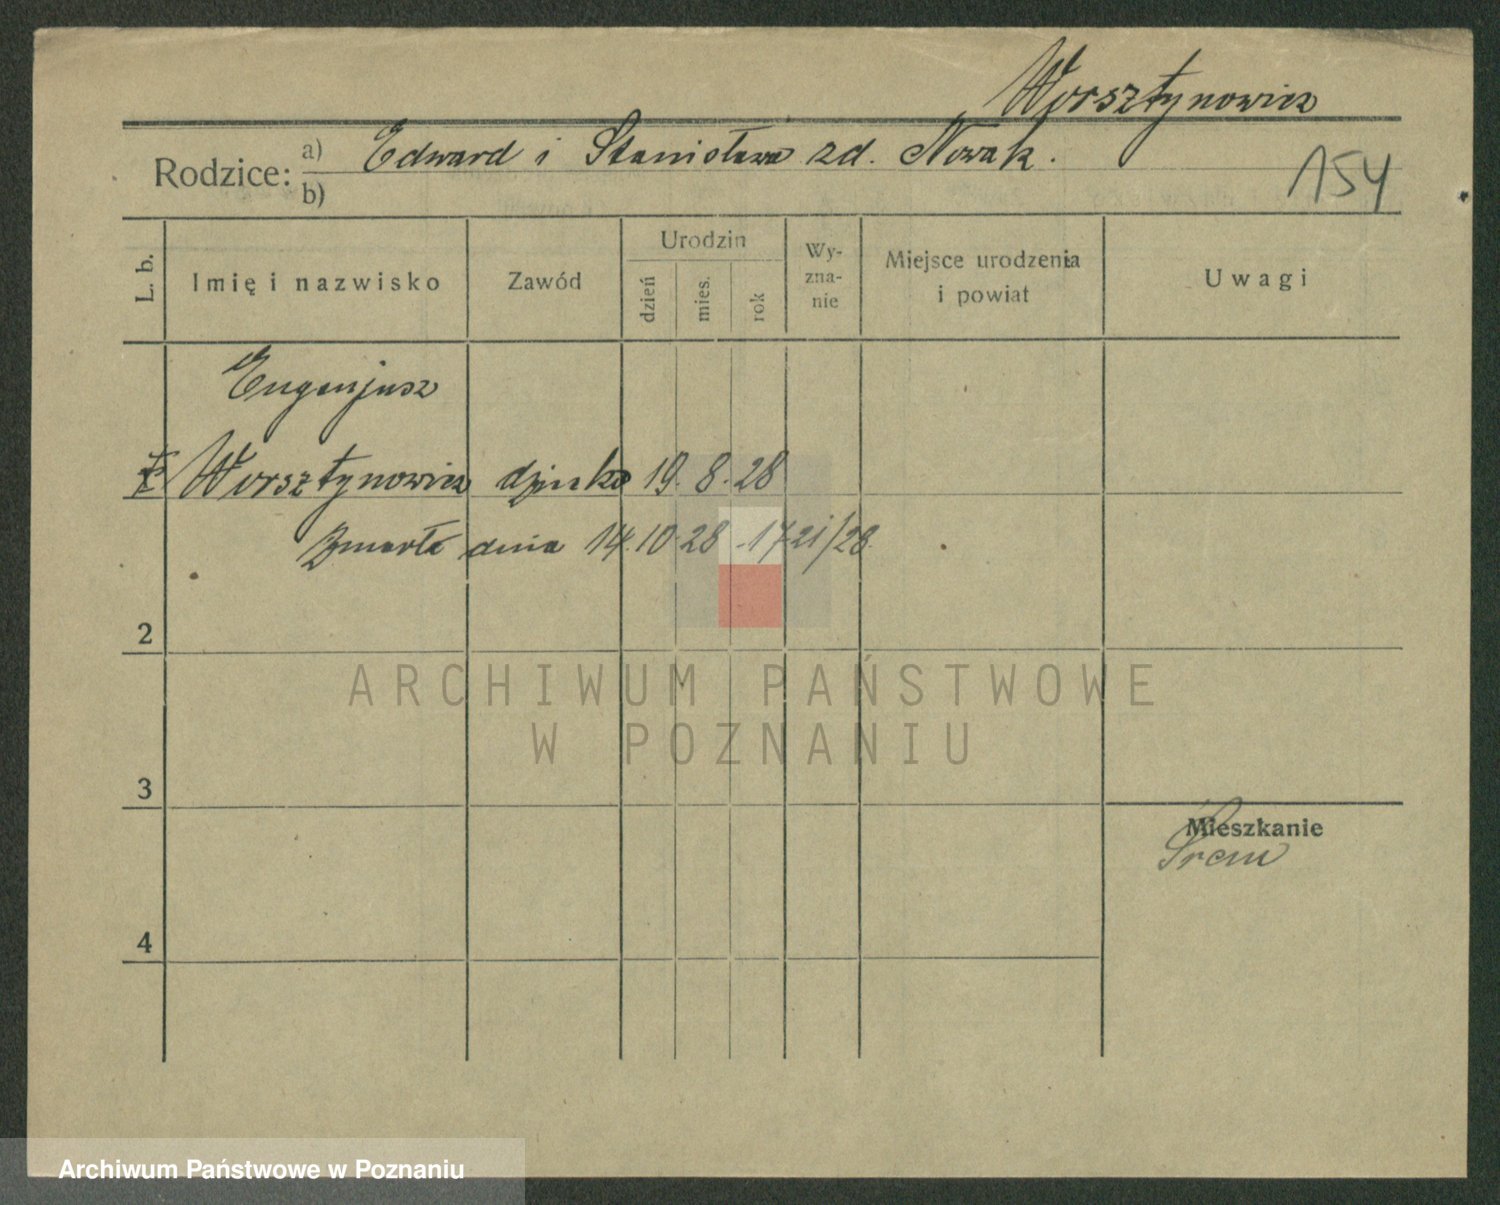 Worsztynowicz
Rodzice: a) Edward i Stanisława zd. Nowak.
b)
154
L. b.
Imię i nazwisko
Zawód
Urodzin
dzień
mies.
rok
Wy-
zna-
nie
Miejsce urodzenia
i powiat
Uwagi
Eugenjusz
Worsztynowicz dziecko 19. 8. 28
Zmarł dnia 14.10.28 -1721/28.
2
3
4
Mieszkanie
Śrem
ARCHIWUM PAŃSTWOWE
W POZNANIU
Archiwum Państwowe w Poznaniu